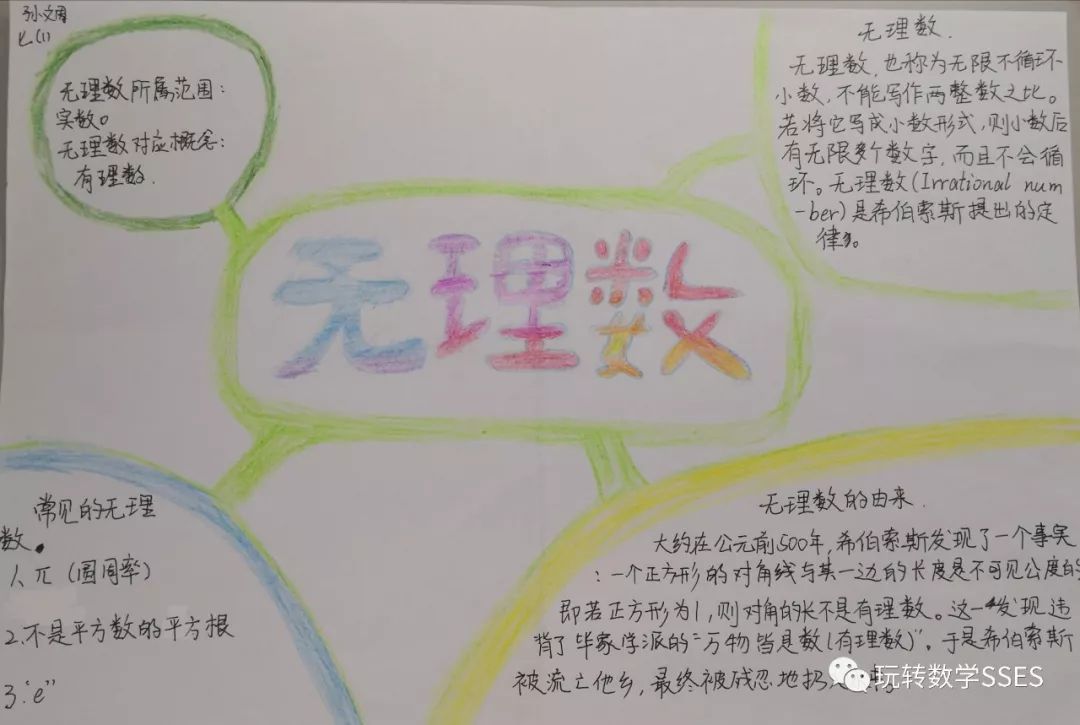 孙文周
七(1)
无理数所属范围:
实数。
无理数对应概念:
有理数.
无理数.
无理数,也称为无限不循环
小数,不能写作两整数之比。
若将它写成小数形式,则小数后
有无限多个数字,而且不会循
环。无理数(Irrational num
-ber)是希伯索斯提出的定
律。
无理数
常见的无理
数.
1、π(圆周率)
2.不是平方数的平方根
3."e"
无理数的由来.
大约在公元前500年,希伯索斯发现了一个事实
:一个正方形的对角线与其一边的长度是不可见公度的
即若正方形为1,则对角的长不是有理数。这一发现违
背了毕家学派的"万物皆是数(有理数)"。于是希伯索斯
被流亡他乡,最终被残忍地扔
玩转数学SSES